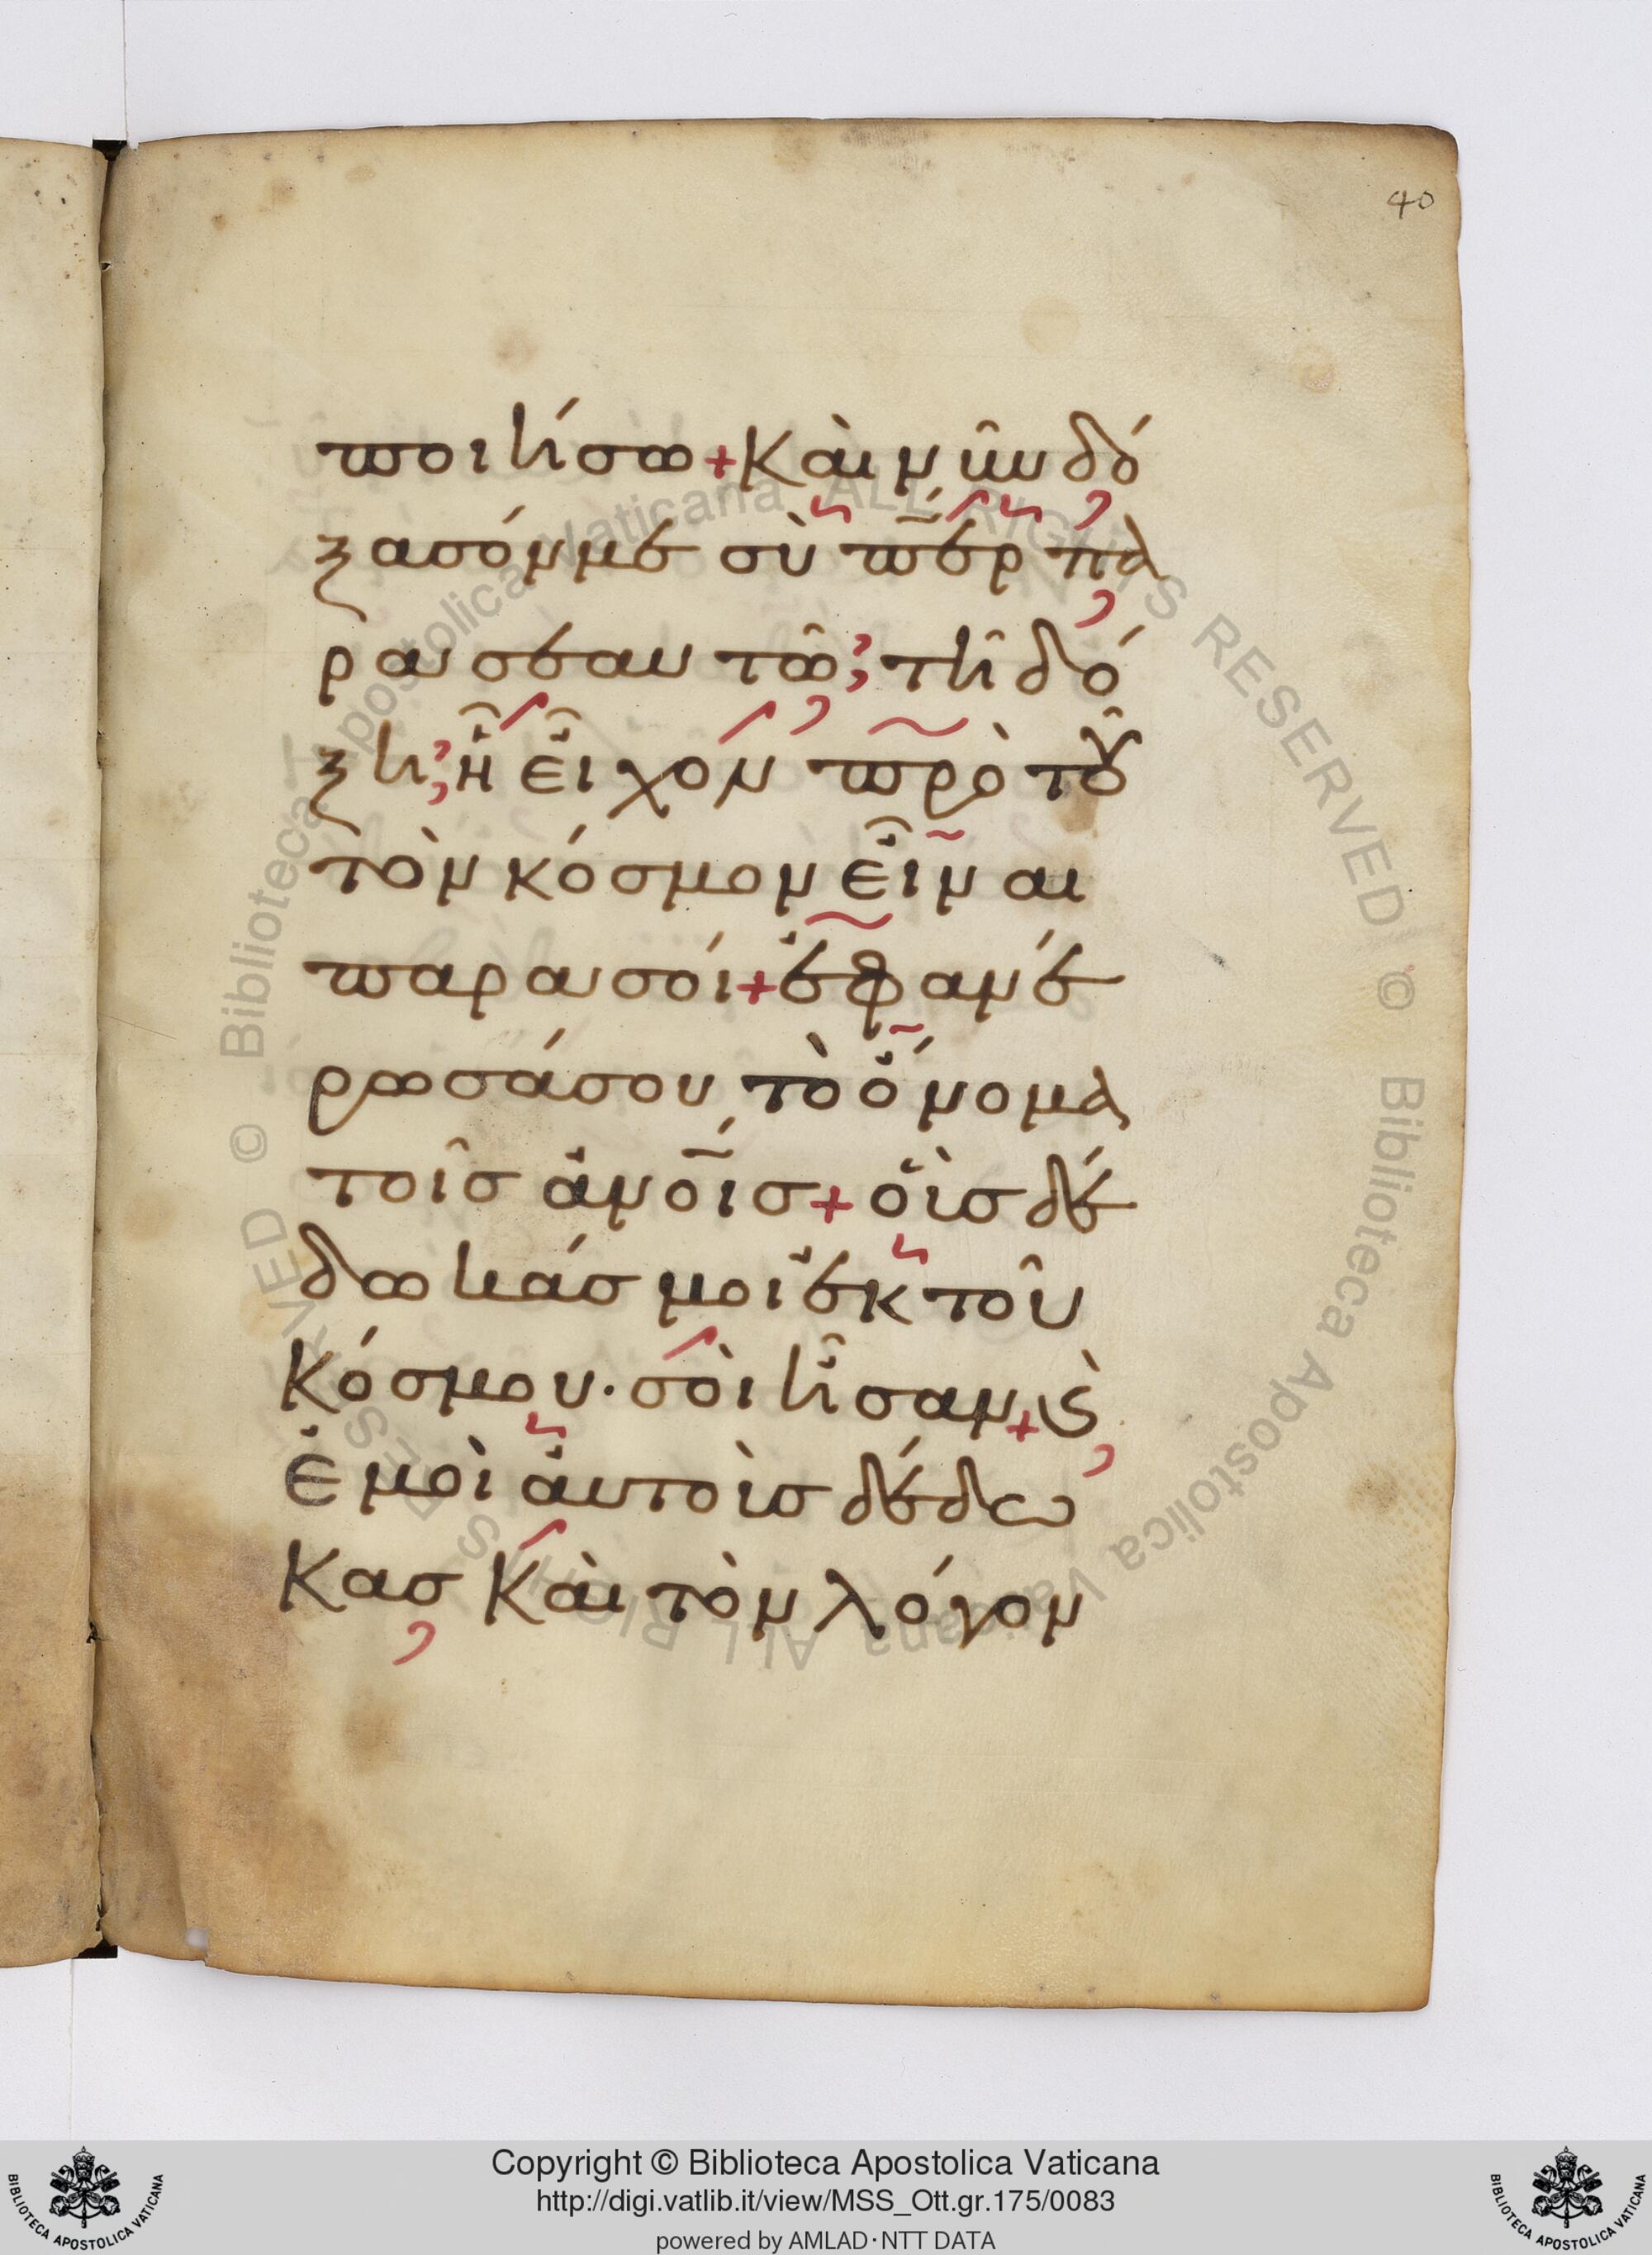 40
ποιήσω + καὶ νῦν δό
ξασόν με σὺ πε̄́ρ πα
ρα σεαυτῶ; τῆ δό
ξη; ἧ εἶχον πρὸ τοῦ
τὸν κόσμον εἶναι
παρα σοί + ἐφανέ
ρωσά σου τὸ ὄνομα
τοῖς ἀνο̄ίς + οὓς δέ
δωκάς μοι ἐκ τοῦ
κόσμου · σοὶ ἦσαν + κ̀
ἐμοὶ ἀυτοὺς δέδω
κας καὶ τὸν λόγον
Biblioteca Apostolica Vaticana ALL RIGHTS RESERVED © Biblioteca Apostolica Vaticana ALL RIGHTS RESERVED ©
BIBLIOTECA APOSTOLICA VATICANA
Copyright © Biblioteca Apostolica Vaticana
http://digi.vatlib.it/view/MSS_Ott.gr.175/0083
powered by AMLAD·NTT DATA
BIBLIOTECA APOSTOLICA VATICANA